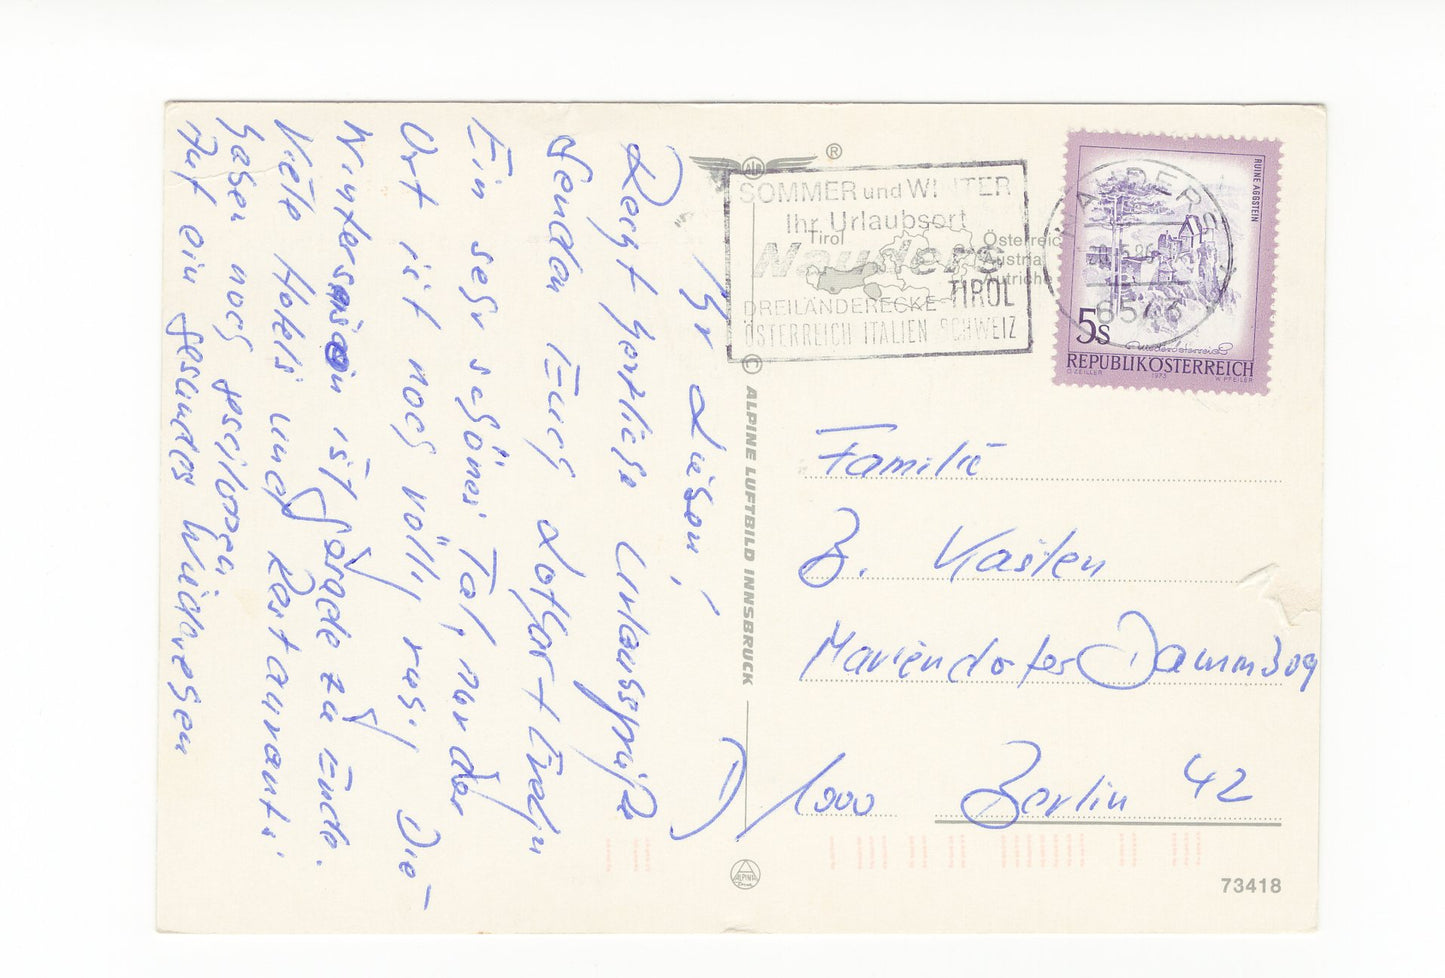 Ihr Lieben!
Recht herzliche Urlaubsgrüße
senden Euch Lothar + Evelyn
Ein sehr schönes Tal, nur der
Ort ist noch völlig Die
Wintersaison ist gerade zu Ende.
Viele Hotels und Restaurants
haben noch geschlossen
Auf ein gesundes Wiedersehen
®
SOMMER und WINTER
Ihr Urlaubsort
Tirol
Nauders
TIROL
DREILÄNDERECKE
ÖSTERREICH ITALIEN SCHWEIZ
Österreich
Austria
Autriche
NAUDERS
6543
RUINE AGGSTEIN
5s
Niederösterreich
REPUBLIK ÖSTERREICH
O. ZEILLER 1973 W. PFEILER
© ALPINE LUFTBILD INNSBRUCK
Familie
Mariendorfer Damm 309
1000 Berlin 42
ALPINA
73418